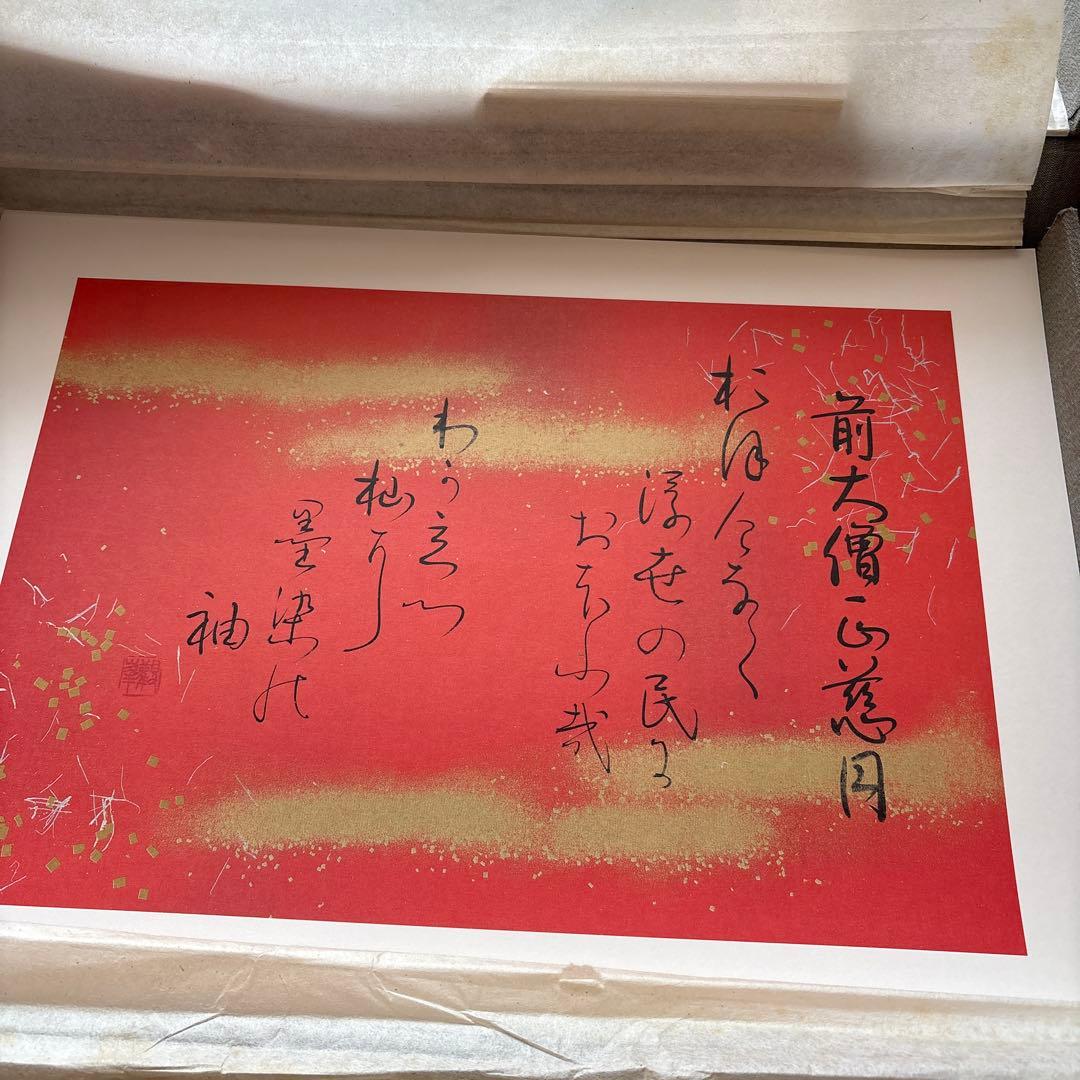 前大僧正慈円
おほけなく
浮世の民に
おほふ哉
わか立つ
杣に
墨染の
袖